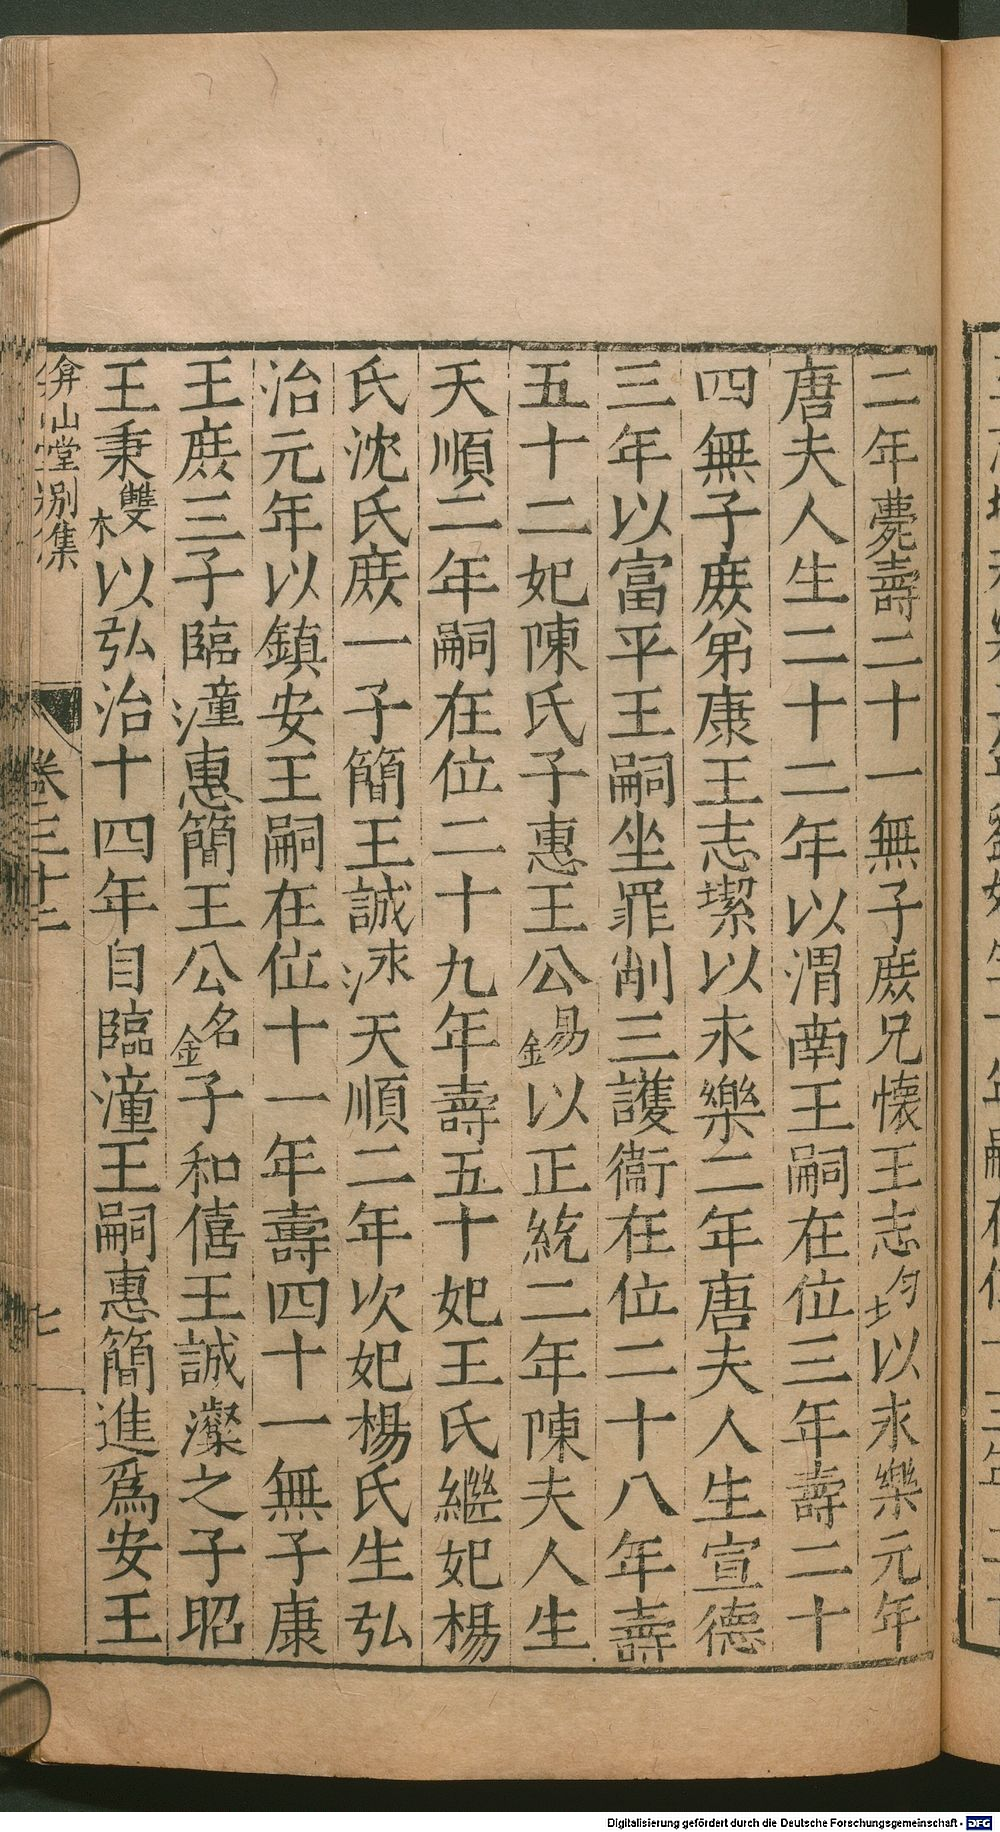 二年薨壽二十一無子庻兄懷王志均以永樂元年
唐夫人生二十二年以渭南王嗣在位三年壽二十
四無子庻弟康王志𡐤以永樂二年唐夫人生宣德
三年以富平王嗣坐罪削三護衞在位二十八年壽
五十二妃陳氏子惠王公錫以正統二年陳夫人生
天順二年嗣在位二十九年壽五十妃王氏繼妃楊
氏沈氏庻一子簡王誠泳天順二年次妃楊氏生弘
治元年以鎮安王嗣在位十一年壽四十一無子康
王庻三子臨潼惠簡王公銘子和僖王誠澯之子昭
王秉欆以弘治十四年自臨潼王嗣惠簡進爲安王
弇山堂別集
卷三十二
七
Digitalisierung gefördert durch die Deutsche Forschungsgemeinschaft - DFG